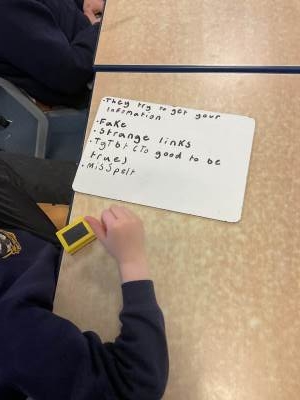 •They try to get your
Information
•Fake
•Strange links
•TgTbt (To good to be
true)
•Misspelt